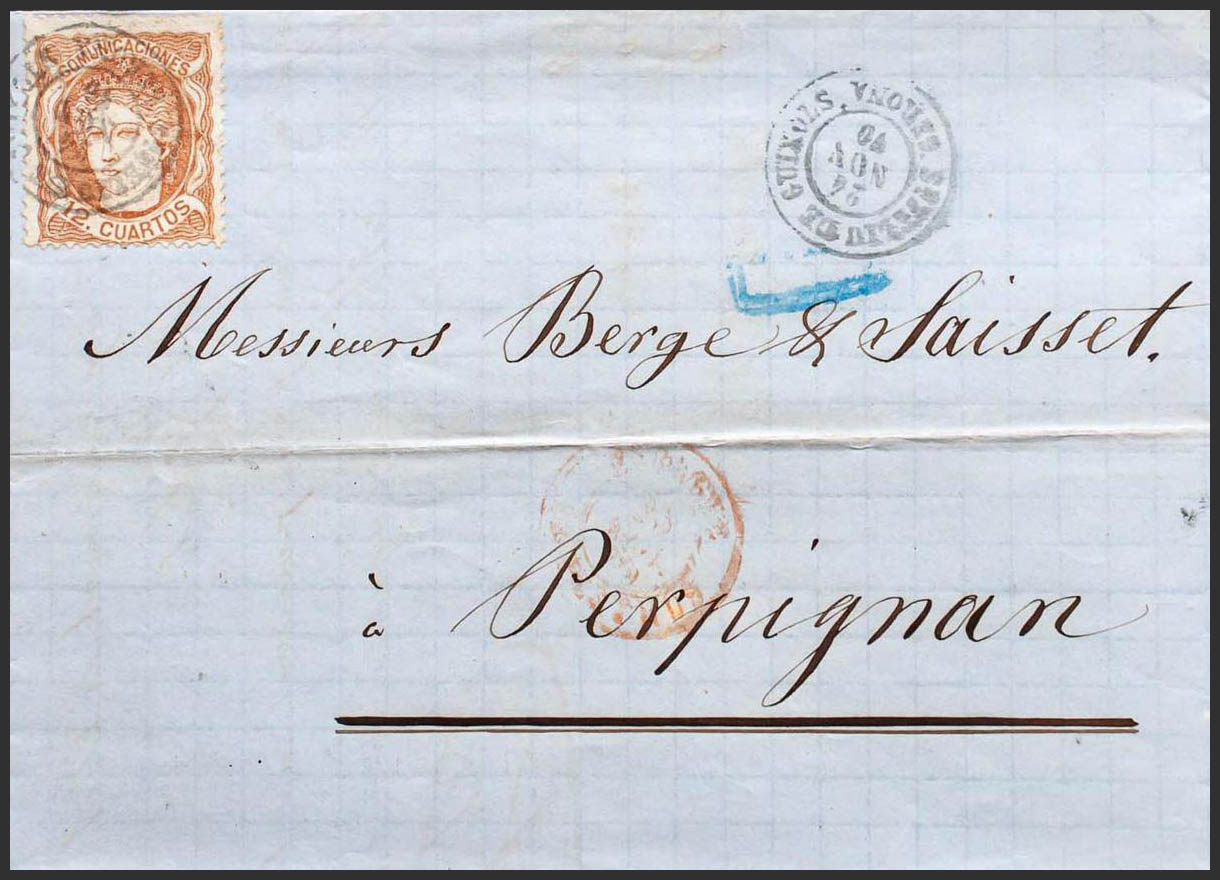 COMUNICACIONES
12. CUARTOS
Sⁿ FELIU DE GUIXOLS
24
NOV
70
GERONA.
Messieurs Berge & Saisset.
à Perpignan